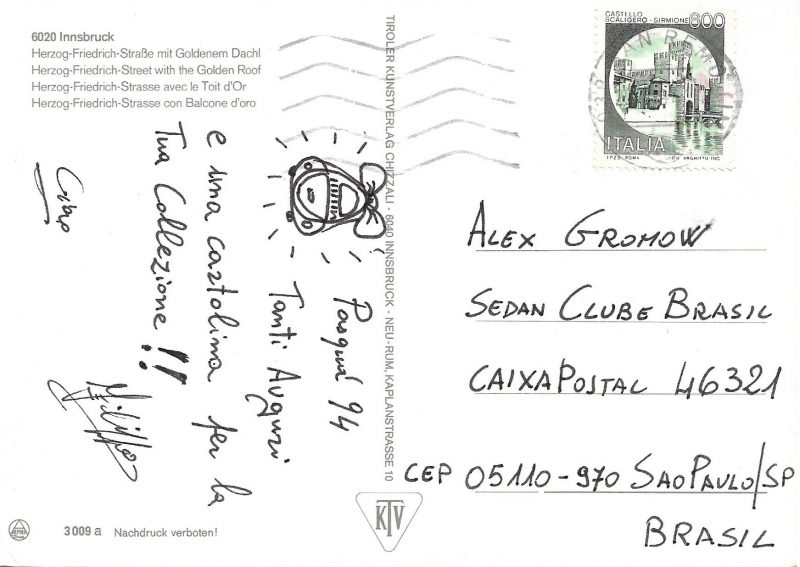 6020 Innsbruck
Herzog-Friedrich-Straße mit Goldenem Dachl
Herzog-Friedrich-Street with the Golden Roof
Herzog-Friedrich-Strasse avec le Toit d'Or
Herzog-Friedrich-Strasse con Balcone d'oro
CASTELLO
SCALIGERO - SIRMIONE
600
ITALIA
I.P.Z.S. ROMA
TIROLER KUNSTVERLAG CHIZZALI - 6040 INNSBRUCK - NEU-RUM, KAPLANSTRASSE 10
Pasqua 94
Tanti Auguri
e una cartolina per la
Tua Collezione!!
Ciao
Filippo
ALEX GROMOW
SEDAN CLUBE BRASIL
CAIXA POSTAL 46321
CEP 05110-970 SAO PAULO/SP
BRASIL
KTV
3009 a
Nachdruck verboten!